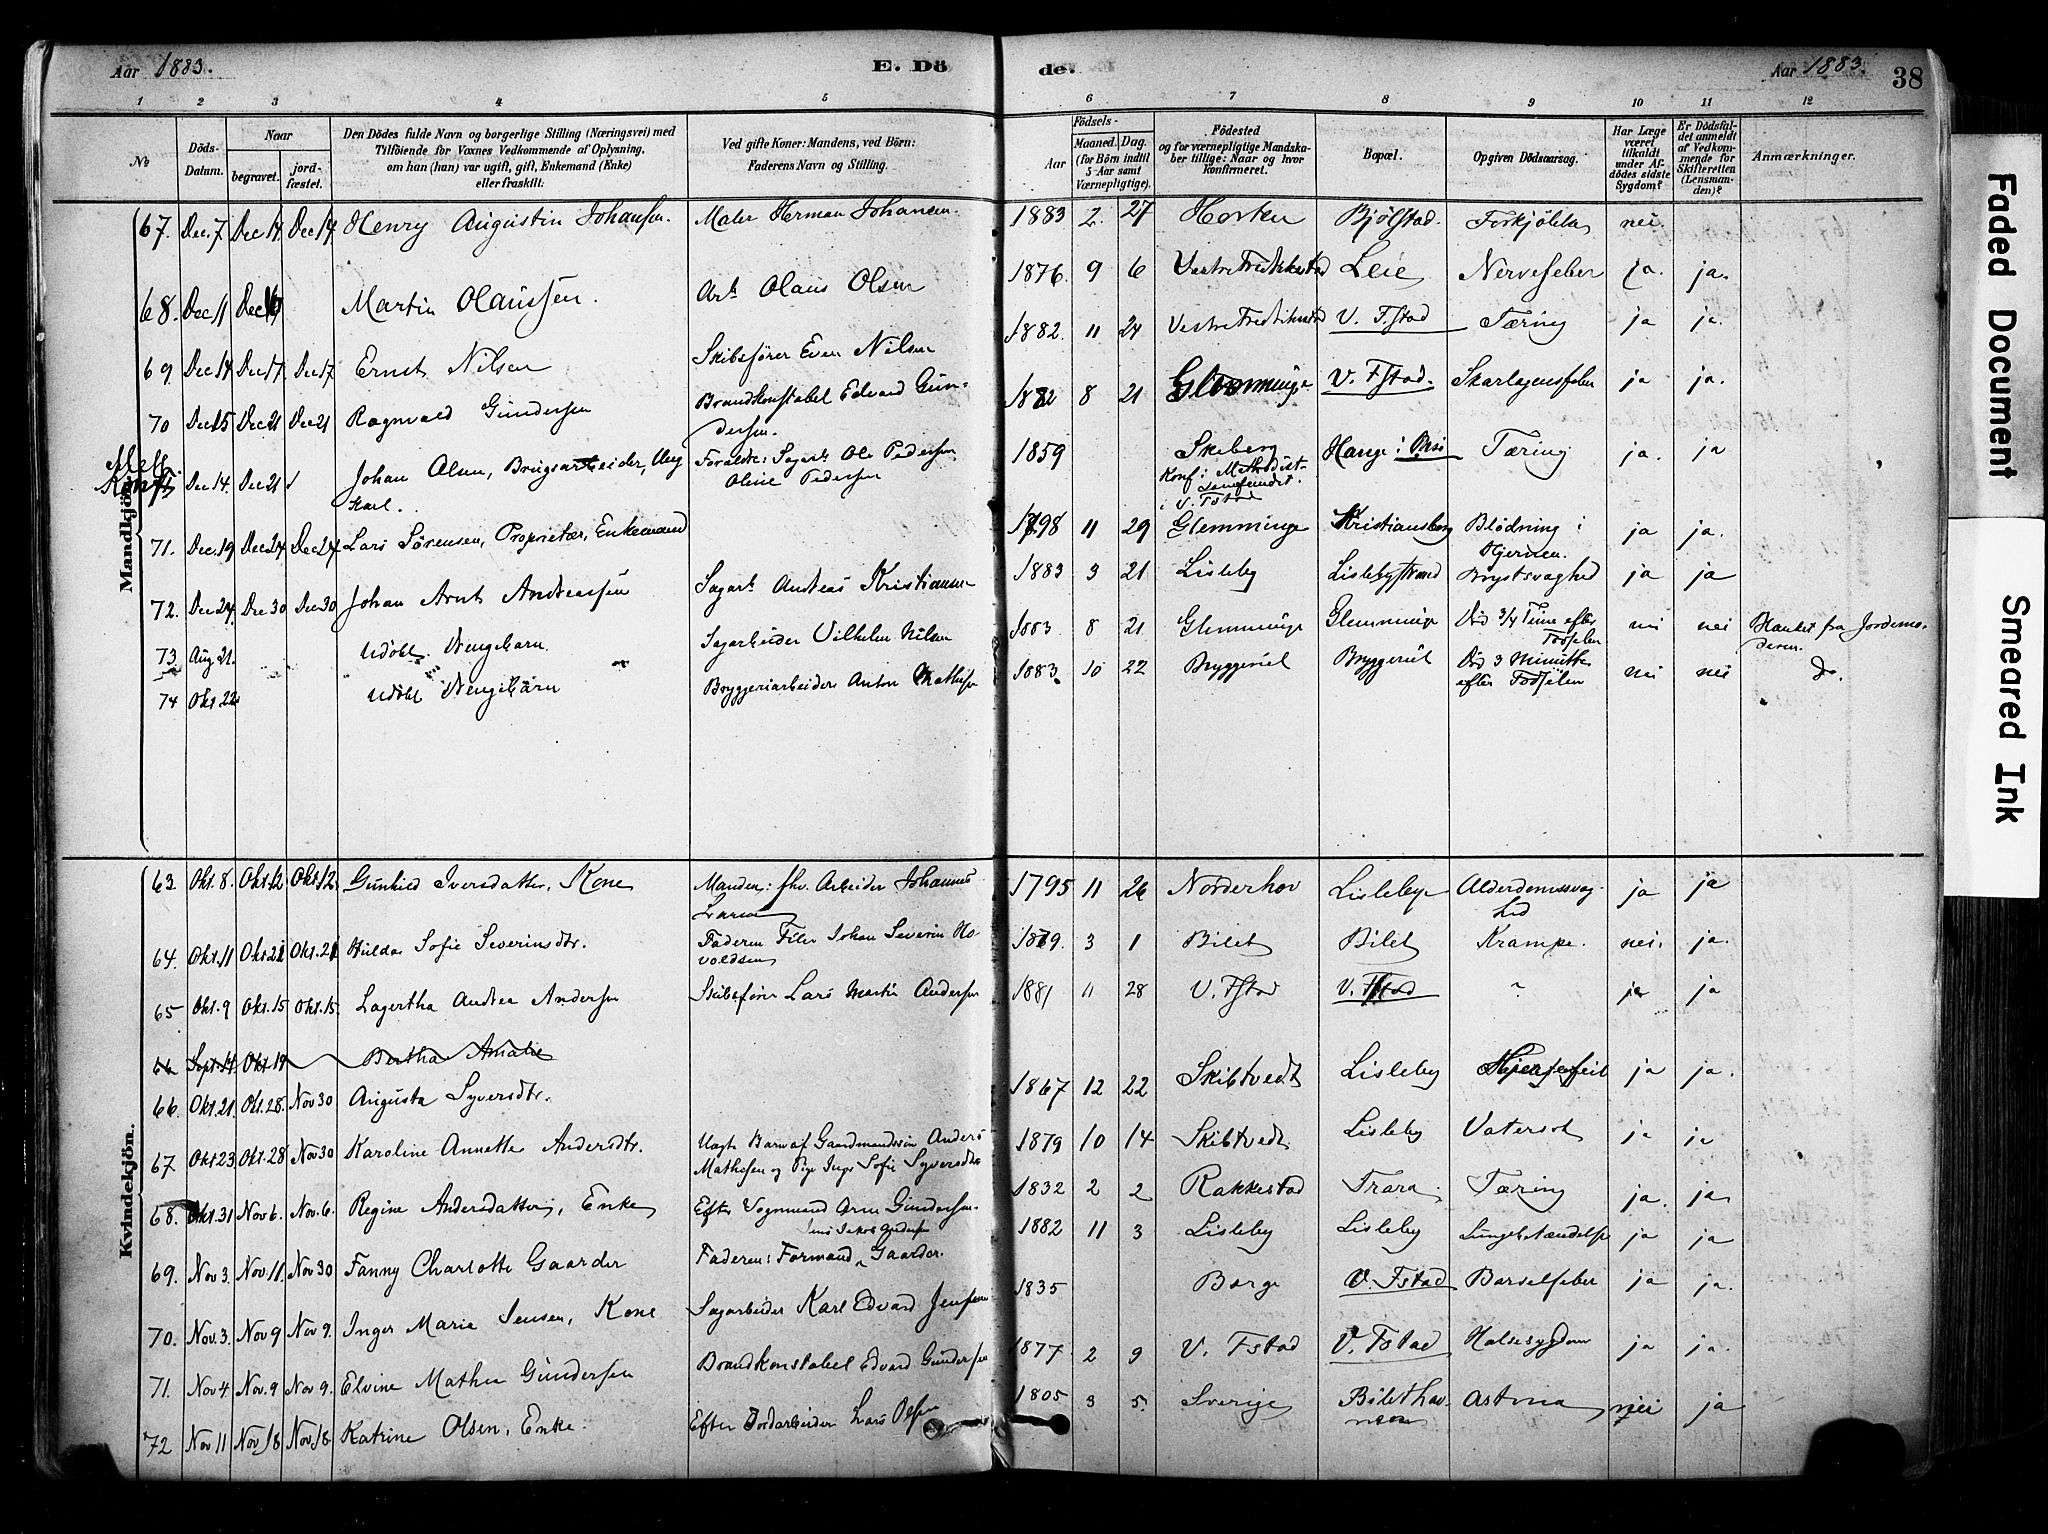 Aar 1883.
E. Dö
de.
Aar 1883.
38
1 2 3 4 5 6 7 8 9 10 11 12
No
Döds-Datum.
Naar
begravet.
jord-fæstet.
Den Dödes fulde Navn og borgerlige Stilling (Næringsvei) med
Tilföiende for Voxnes Vedkommende af Oplysning,
om han (hun) var ugift, gift, Enkemand (Enke)
eller fraskilt.
Ved gifte Koner: Mandens, ved Börn:
Faderens Navn og Stilling.
Födsels-
Aar
Maaned. Dag.
(for Börn indtil
5 Aar samt
Værnepligtige).
Födested
og for værnepligtige Mandska-
ber tillige: Naar og hvor
konfirmeret.
Bopæl.
Opgiven Dödsaarsag.
Har Læge
været
tilkaldt
under Af-
dödes sidste
Sygdom?
Er Dödsfal-
det anmeldt
af Vedkom-
mende for
Skifteretten
(Lensman-
den)?
Anmærkninger.
Mandkjön.
67. Dec. 7 Dec 14 Dec 14 Henry Augustin Johansen. Maler Herman Johansen. 1883 2. 27 Horten Bjølstad. Forkjölelse nei.
68. Dec 11 Dec 16 Martin Olaussen. Arb. Olaus Olsen 1876. 9 6 Vestre Fredrikstad Leie Nervefeber ja. ja.
69. Dec 14 Dec 17. Dec 17 Ernst Nilsen Skibsfører Even Nilsen 1882. 11 24 Vestre Fredrikstad V. Fstad Tæring ja ja.
70 Dec 15 Dec 21 Dec 21 Ragnvald Gundersen Brandkonstabel Edvard Gun-
dersen. 1882 8 21 Glemminge V. Fstad. Skarlagensfeber ja ja.
Dec 14. Dec 21 Johan Olsen, Brugsarbeider, Ung
Karl. Foraldre: Sagarb. Ole Pedersen
Oline Pedersen 1859 Skeberg
Konf. i Methodist-
samfundet
i V. Fstad Hauge i Tæring ja. ja
71. Dec. 19 Dec 24 Dec 24 Lars Sörensen, Proprietær, Enkemand 1798 11 29 Glemminge Kristiansberg Blödning i
Hjernen. ja ja.
72. Dec 24. Dec 30 Dec 30 Johan Arnt Andreassen Sagarb. Andreas Kristiansen 1883 3 21 Lisleby Lislebystrand Brystsvaghed ja ja
73 Aug 21. Udöbt Drengebarn. Sagarbeider Vilhelm Nilsen 1883. 8 21 Glemminge Glemminge Död 3/4 Time efter
Fødselen nei nei Blanket fra Jordemo-
deren.
74 Okt 22 Udöbt Drengebarn Bryggeriarbeider Anton Mathisen 1883. 10 22 Bryggeriet Bryggeriet Död 3 Minutter
efter Fødselen nei nei Do.
Kvindekjön.
63. Okt. 8. Okt. 12. Okt. 12. Gunhild Iversdatter, Kone Manden: fhv. Arbeider Johannes
Larsen 1795 11 26 Norderhov Lisleby Alderdomssvag-
hed ja ja
64. Okt. 11 Okt 21 Okt. 21 Hulda Sofie Severinsdtr. Faderen Filer Johan Severin Ho-
voldsen 1879. 3 1 Bilet Bilet Krampe. nei. ja.
65 Okt. 9 Okt. 15 Okt. 15. Lagertha Andrea Andersen Skibsfører Lars Martin Andersen 1881 11 28 V. Fstad V. Fstad ? ja ja
66 Sept 14. Okt 19 Bertha Amalie
66. Okt. 21. Okt. 28. Nov 30 Augusta Syversdtr. 1867 12 22 Skibtvedt Lisleby Hjertefeil ja ja.
67. Okt 23. Okt. 28 Nov 30 Karoline Annette Andersdtr. Uægte Barn af Gaardmandssön Anders
Mathisen og Pige Inger Sofie Syversdtr 1879 10 14 Skibtvedt Lisleby Vatersot ja ja
68. Okt. 31 Nov 6. Nov. 6. Regine Andersdatter, Enke Efter Vognmand Arne Gundersen 1832 2 2 Rakkestad Trara Tæring ja. ja.
69. Nov 3. Nov 11. Nov 30 Fanny Charlotte Gaarder Faderen: Formand Gaarder. 1882 11 3 Lisleby Lisleby Lungebetændelse ja ja
70. Nov. 3. Nov 9 Nov 9. Inger Marie Jensen, Kone Sagarbeider Karl Edvard Jensen 1835 Borge V. Fstad Barselfeber ja ja.
71. Nov 4 Nov. 9 Nov 9. Elvine Mathea Gundersen Brandkonstabel Edvard Gundersen 1877 2 9 V. Fstad V. Fstad Halssygdom ja ja.
72 Nov 11 Nov 18 Nov 18 Katrine Olsen, Enke. Efter Jordarbeider Lars Olsen 1805 3 5. Sverige Bilet Astma nei ja
Faded Document
Smeared Ink